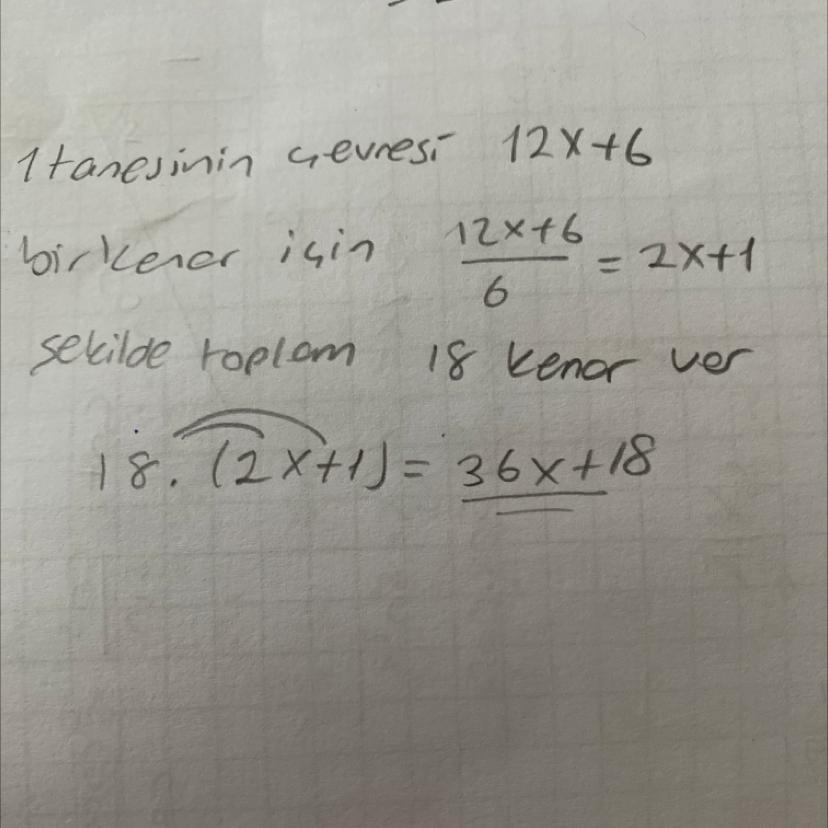 1 tanesinin çevresi 12x+6
bir kenar için 12x+6/6 = 2x+1
sekilde toplam 18 kenar var
18. (2x+1) = 36x+18